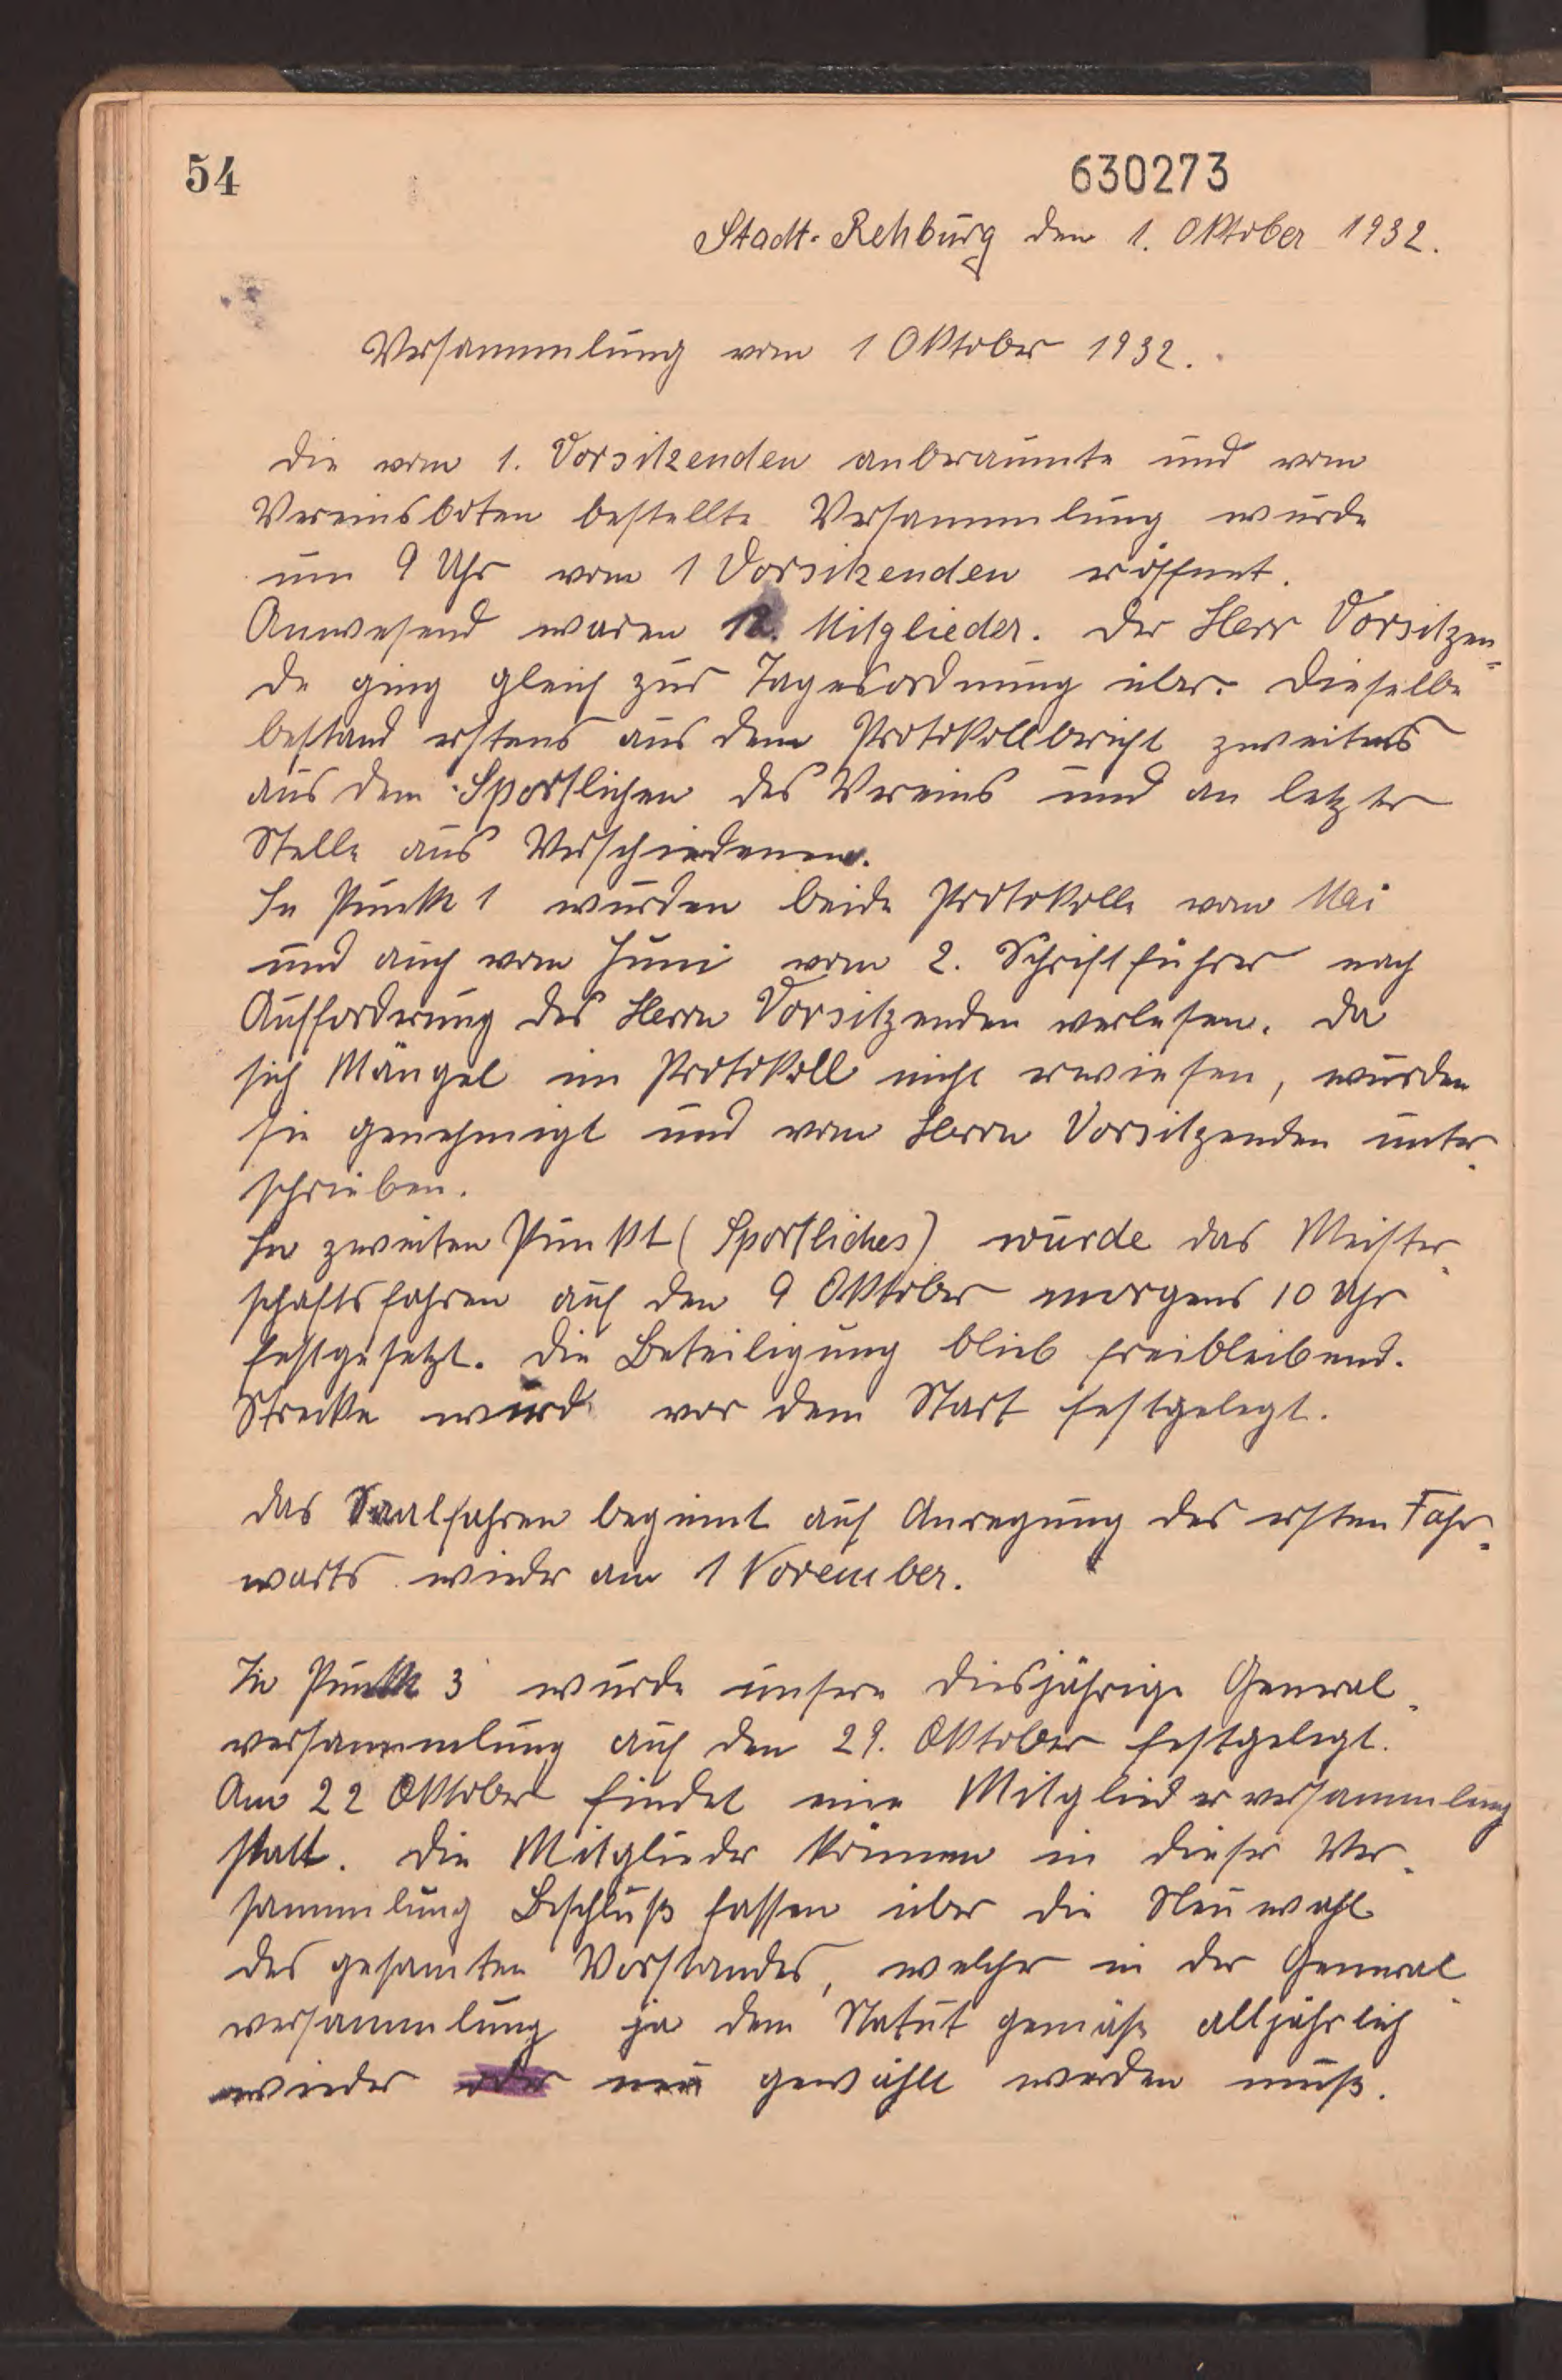 54
630273
Stadt-Rehburg den 1. Oktober 1932.
Versammlung vom 1 Oktober 1932.
Die vom 1. Vorsitzenden anberaumte und vom
Vereinsboten bestellte Versammlung wurde
um 9 Uhr vom 1 Vorsitzenden eröffnet.
Anwesend waren 12. Mitglieder. Der Herr Vorsitzen=
de ging gleich zur Tagesordnung über. Dieselbe
bestand erstens aus dem Protokollbericht zweitens
aus dem Sportlichen des Vereins und an letzter
Stelle aus Verschiedenem.
In Punkt 1 wurden beide Protokolle vom Mai
und auch vom Juni vom 2. Schriftführer nach
Aufforderung des Herrn Vorsitzenden verlesen. Da
sich Mängel im Protokoll nicht erwiesen, wurden
sie genehmigt und vom Herrn Vorsitzenden unter-
schrieben.
In zweiten Punkt (Sportliches) wurde das Meister-
schaftsfahren auf den 9 Oktober morgens 10 Uhr
festgesetzt. Die Beteiligung blieb freibleibend.
Strecke wird vor dem Start festgelegt.
Das Saalfahren beginnt auf Anregung des ersten Fahr=
warts wieder am 1 November.
In Punkt 3 wurde unsere diesjährige General-
versammlung auf den 29. Oktober festgelegt.
Am 22 Oktober findet eine Mitgliederversammlung
statt. Die Mitglieder können in dieser Ver-
sammlung Beschluß fassen über die Neuwahl
des gesamten Vorstandes, welcher in der General-
versammlung ja dem Statut gemäß alljährlich
wieder oder neu gewählt werden muß.